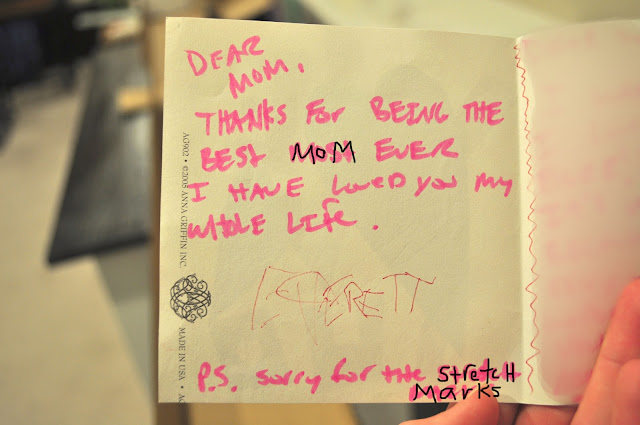 DEAR
MOM,
THANKS FOR BEING THE
BEST MOM EVER
I HAVE LOVED YOU MY
WHOLE LIFE.
EVERETT
P.S. sorry for the stretch
Marks
AG902 • ©2005 ANNA GRIFFIN INC.
MADE IN USA •